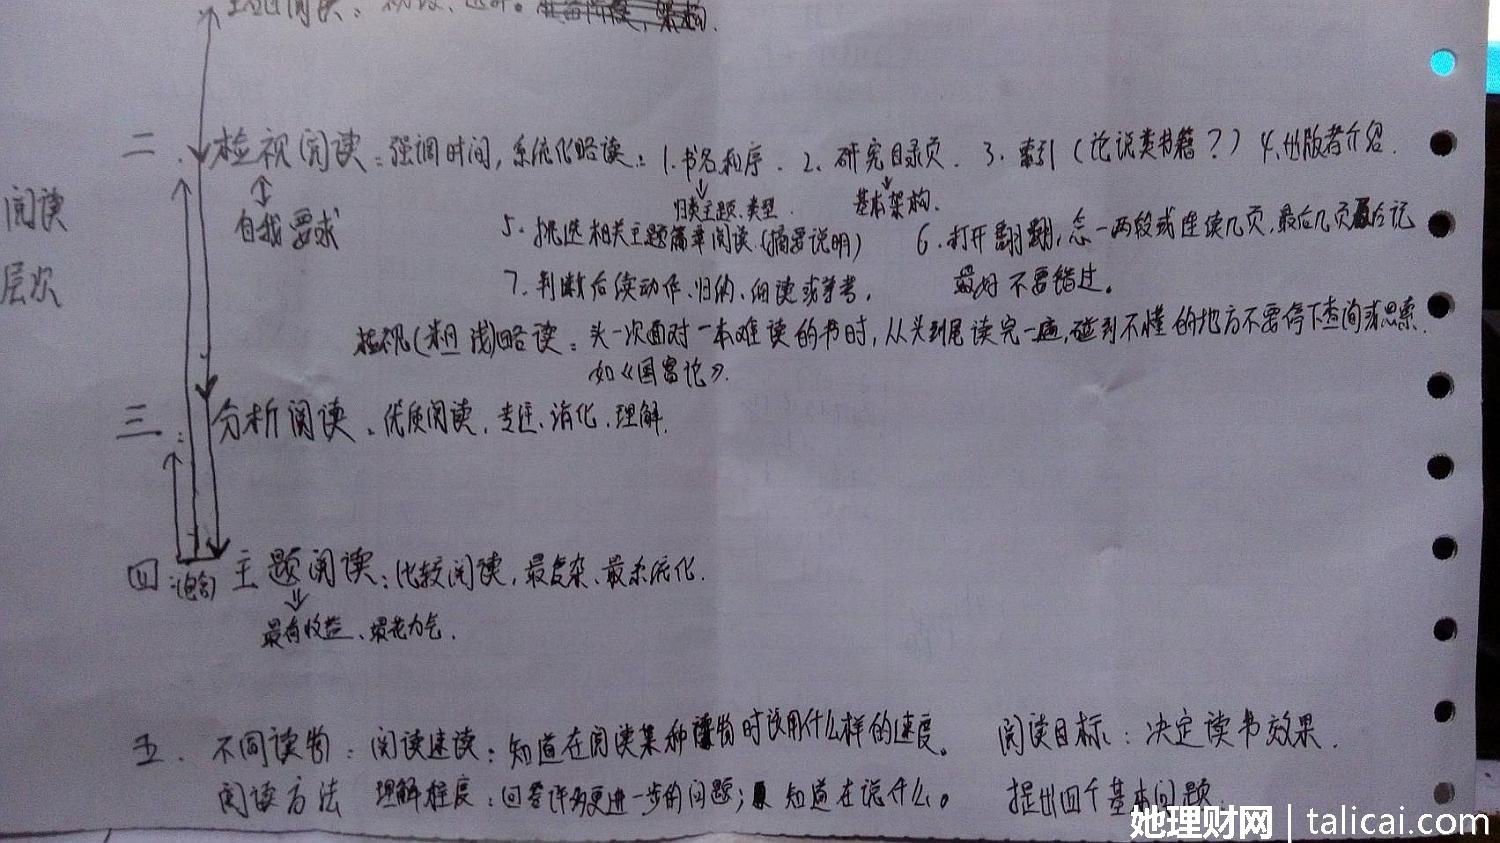 阅读：初级、
二、检视阅读：强调时间，系统化略读：1.书名和序．2、研究目录页．3．索引（论说类书籍？）4.出版者介绍．
归类主题、类型． 基本架构．
阅读
层次
自我要求
5．挑选相关主题篇章阅读．（摘要说明） 6．打开翻翻，念一两段或连续几页，最后几页最后记
最好不要错过。
7．判断后续动作、归纳、细读或参考，
检视（粗浅）略读：头一次面对一本难读的书时，从头到尾读完一遍，碰到不懂的地方不要停下查询或思索．
如《国富论》．
三．分析阅读：优质阅读，专注、消化、理解．
四．（包含）主题阅读：比较阅读，最复杂、最系统化．
最有收益、最花力气．
五．不同读物：阅读速读：知道在阅读某种读物时该用什么样的速度。 阅读目标：决定读书效果．
阅读方法 理解程度：回答许多更进一步的问题； 知道在说什么。 提出四个基本问题．
她理财网｜talicai.com